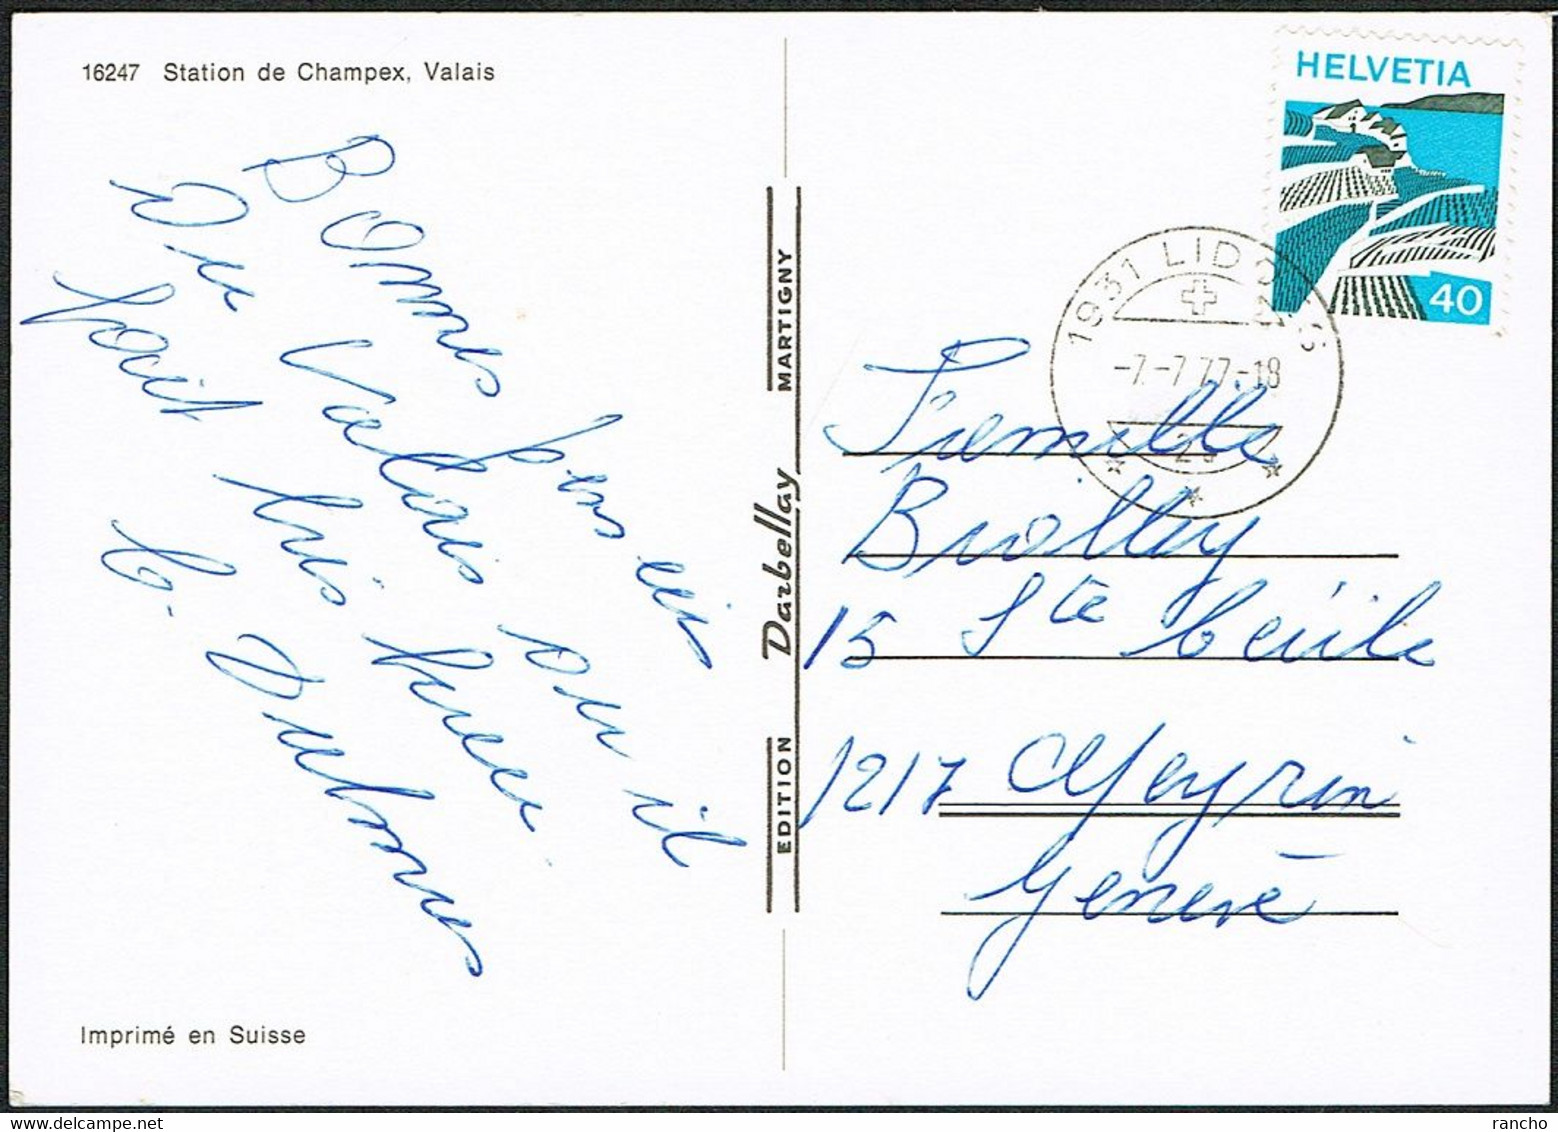 16247 Station de Champex, Valais
Bonnes pensées
Du Valais ou il
fait très beau
C. Dubois
Imprimé en Suisse
EDITION Darbellay MARTIGNY
HELVETIA
40
1931 LIDDES
-7.-7.77-18
Famille
Briolley
15 Ste Cécile
1217 Meyrin
Genève
rancho